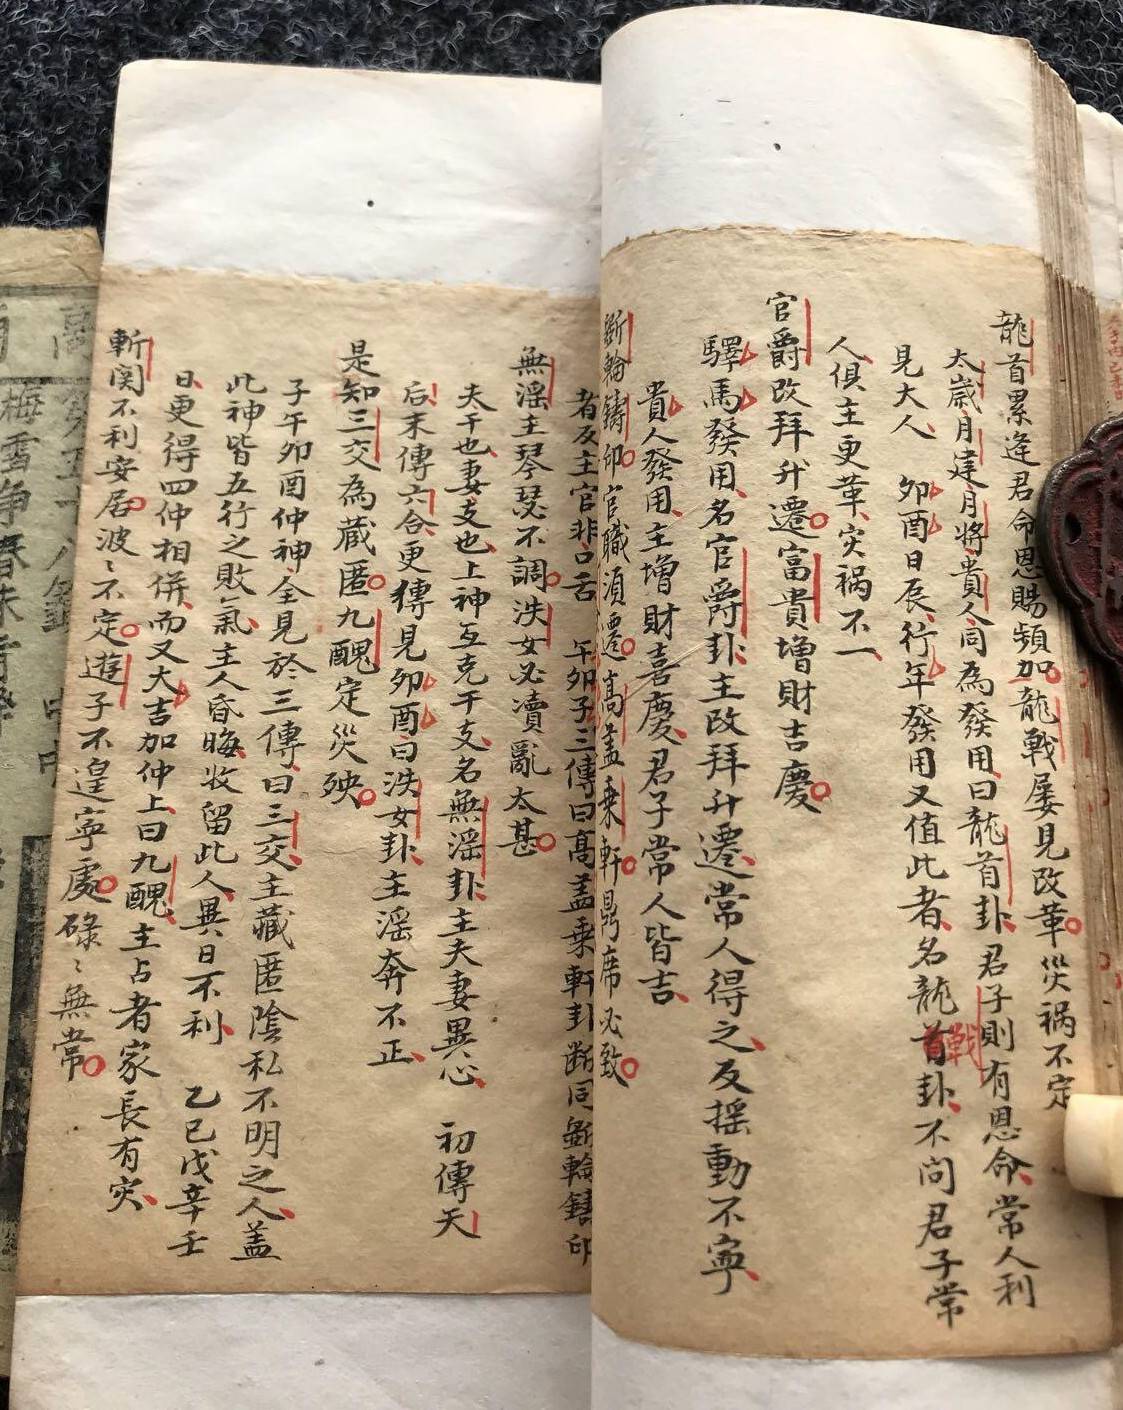 龍首累逢君命恩賜頻加龍戰屢見改革災禍不定
太歲月建月將貴人同為發用曰龍首卦君子則有恩命常人利
見大人　卯酉日辰行年發用又值此者名龍首卦不問君子常
戰
人俱主更革灾禍不一
官爵改拜升遷富貴增財吉慶
驛馬發用名官爵卦主改拜升遷常人得之反摇動不寧
貴人發用主增財喜慶君子常人皆吉
斵輪鑄印官職須遷高盖乗軒鼎席必致
者反主官非口舌　午卯子三傳曰高盖乗軒卦断同斵輪鑄印
無淫主琴瑟不調泆女必瀆亂太甚
夫干也妻支也上神互克干支名無淫卦主夫妻異心　初傳天
后末傳六合更傳見卯酉曰泆女卦主淫奔不正
是知三交為蔵匿九醜定災殃
子午卯酉仲神全見於三傳曰三交主藏匿陰私不明之人盖
此神皆五行之敗氣主人昏晦收留此人異日不利　乙己戊辛壬
日更得四仲相併而又大吉加仲上曰九醜主占者家長有灾
斬関不利安居波〻不定遊子不遑寧處碌〻無常
梅雪争春未肯降